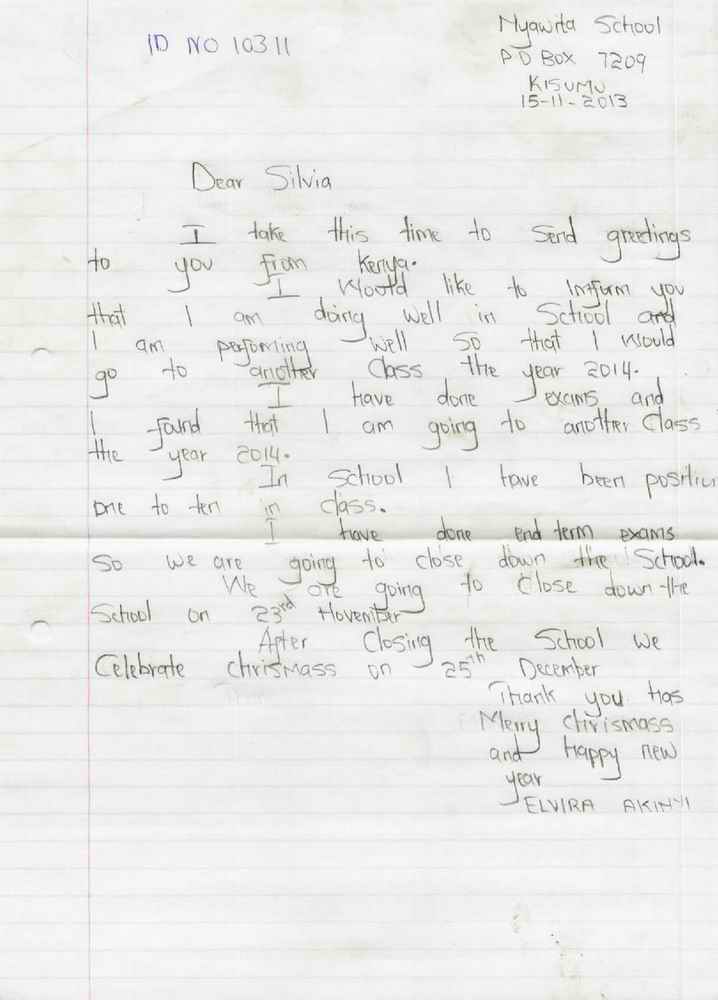 ID NO 10311
Nyawita School
P O Box 7209
KISUMU
15-11-2013
Dear Silvia
I take this time to send greetings
to you from Kenya.
I would like to inform you
that I am doing well in School and
I am performing well so that I would
go to another class the year 2014.
I have done exams and
I found that I am going to another class
the year 2014.
In school I have been position
one to ten in class.
I have done end term exams
so we are going to close down the School.
We are going to close down the
School on 23rd November
After closing the School we
Celebrate chrismass on 25th December
Thank you has
Merry chrismass
and happy new
year
ELVIRA AKINYI